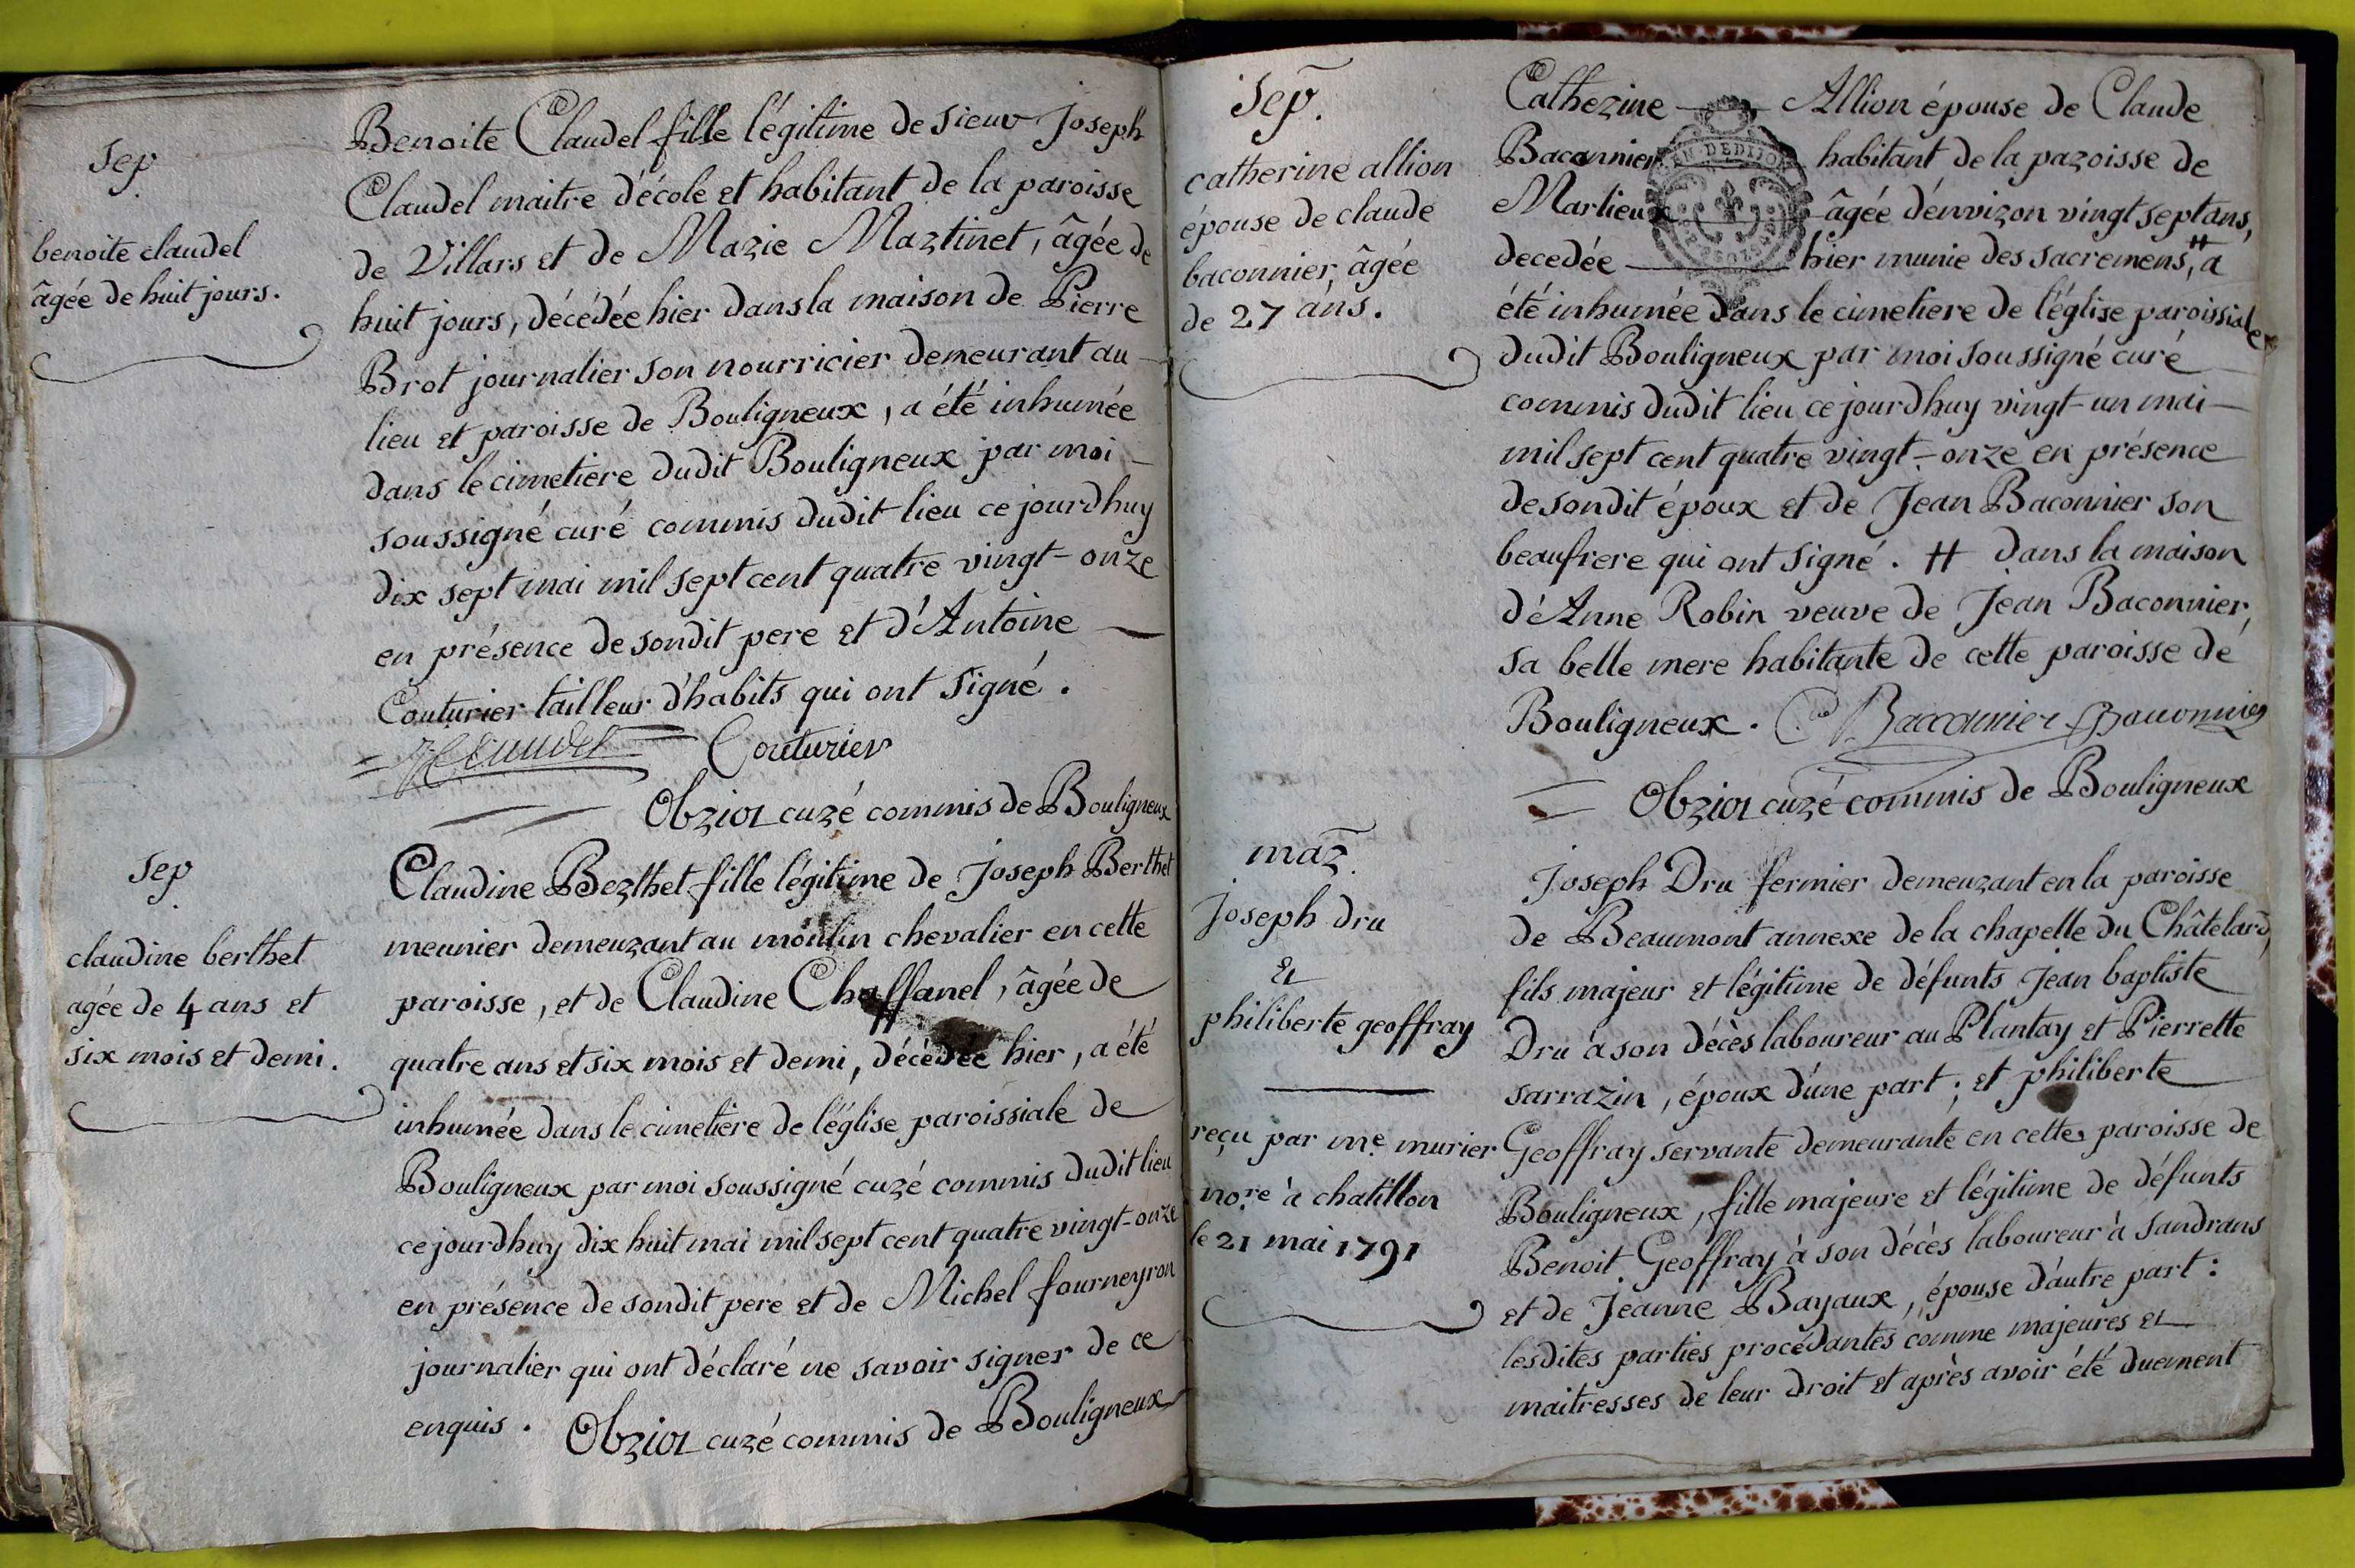 Sep
benoite claudel
âgée de huit jours.
Benoite Claudel fille légitime de sieur Joseph
Claudel maitre d'école et habitant de la paroisse
de Villars et de Marie Martinet, âgée de
huit jours, décédée hier dans la maison de Pierre
Brot journalier son nourricier demeurant au
lieu et paroisse de Bouligneux, a été inhumée
dans le cimetiere dudit Bouligneux par moi
soussigné curé commis dudit lieu ce jourdhuy
dix sept mai mil sept cent quatre vingt-onze
en présence de sondit pere et d'Antoine
Couturier tailleur d'habits qui ont signé.
Claudel Couturier
Obrier curé commis de Bouligneux
Sep
claudine berthet
agée de 4 ans et
six mois et demi.
Claudine Berthet fille légitime de Joseph Berthet
meunier demeurant au moulin chevalier en cette
paroisse, et de Claudine Chaffanel, âgée de
quatre ans et six mois et demi, décédée hier, a été
inhumée dans le cimetiere de l'église paroissiale de
Bouligneux par moi soussigné curé commis dudit lieu
ce jourdhuy dix huit mai mil sept cent quatre vingt-onze
en présence de sondit pere et de Michel fourneyron
journalier qui ont déclaré ne savoir signer de ce
enquis. Obrier curé commis de Bouligneux
Sep.
catherine allion
épouse de claude
baconnier, âgée
de 27 ans.
Catherine Allion épouse de Claude
Baconnier habitant de la paroisse de
Marlieux âgée d'environ vingt sept ans,
decedée hier munie des sacremens, # a
été inhumée dans le cimetiere de l'église paroissiale
dudit Bouligneux par moi soussigné curé
commis dudit lieu ce jourdhuy vingt-un mai
mil sept cent quatre vingt-onze en présence
de sondit époux et de Jean Baconnier son
beaufrere qui ont signé. # dans la maison
d'Anne Robin veuve de Jean Baconnier,
sa belle mere habitante de cette paroisse de
Bouligneux. C Baconnier Baconnier
Obrier curé commis de Bouligneux
mar.
Joseph dru
&
philiberte geoffray
reçu par me. murier
nore. à chatillon
le 21 mai 1791
Joseph Dru fermier demeurant en la paroisse
de Beaumont annexe de la chapelle du Châtelard,
fils majeur et légitime de défunts Jean baptiste
Dru à son décès laboureur au Plantay et Pierrette
sarrazin, époux d'une part; et philiberte
Geoffray servante demeurante en cette paroisse de
Bouligneux, fille majeure et légitime de défunts
Benoit Geoffray à son décès laboureur à Sandrans
et de Jeanne Bayaux, épouse d'autre part:
lesdites parties procédantes comme majeures et
maitresses de leur droit et après avoir été duement